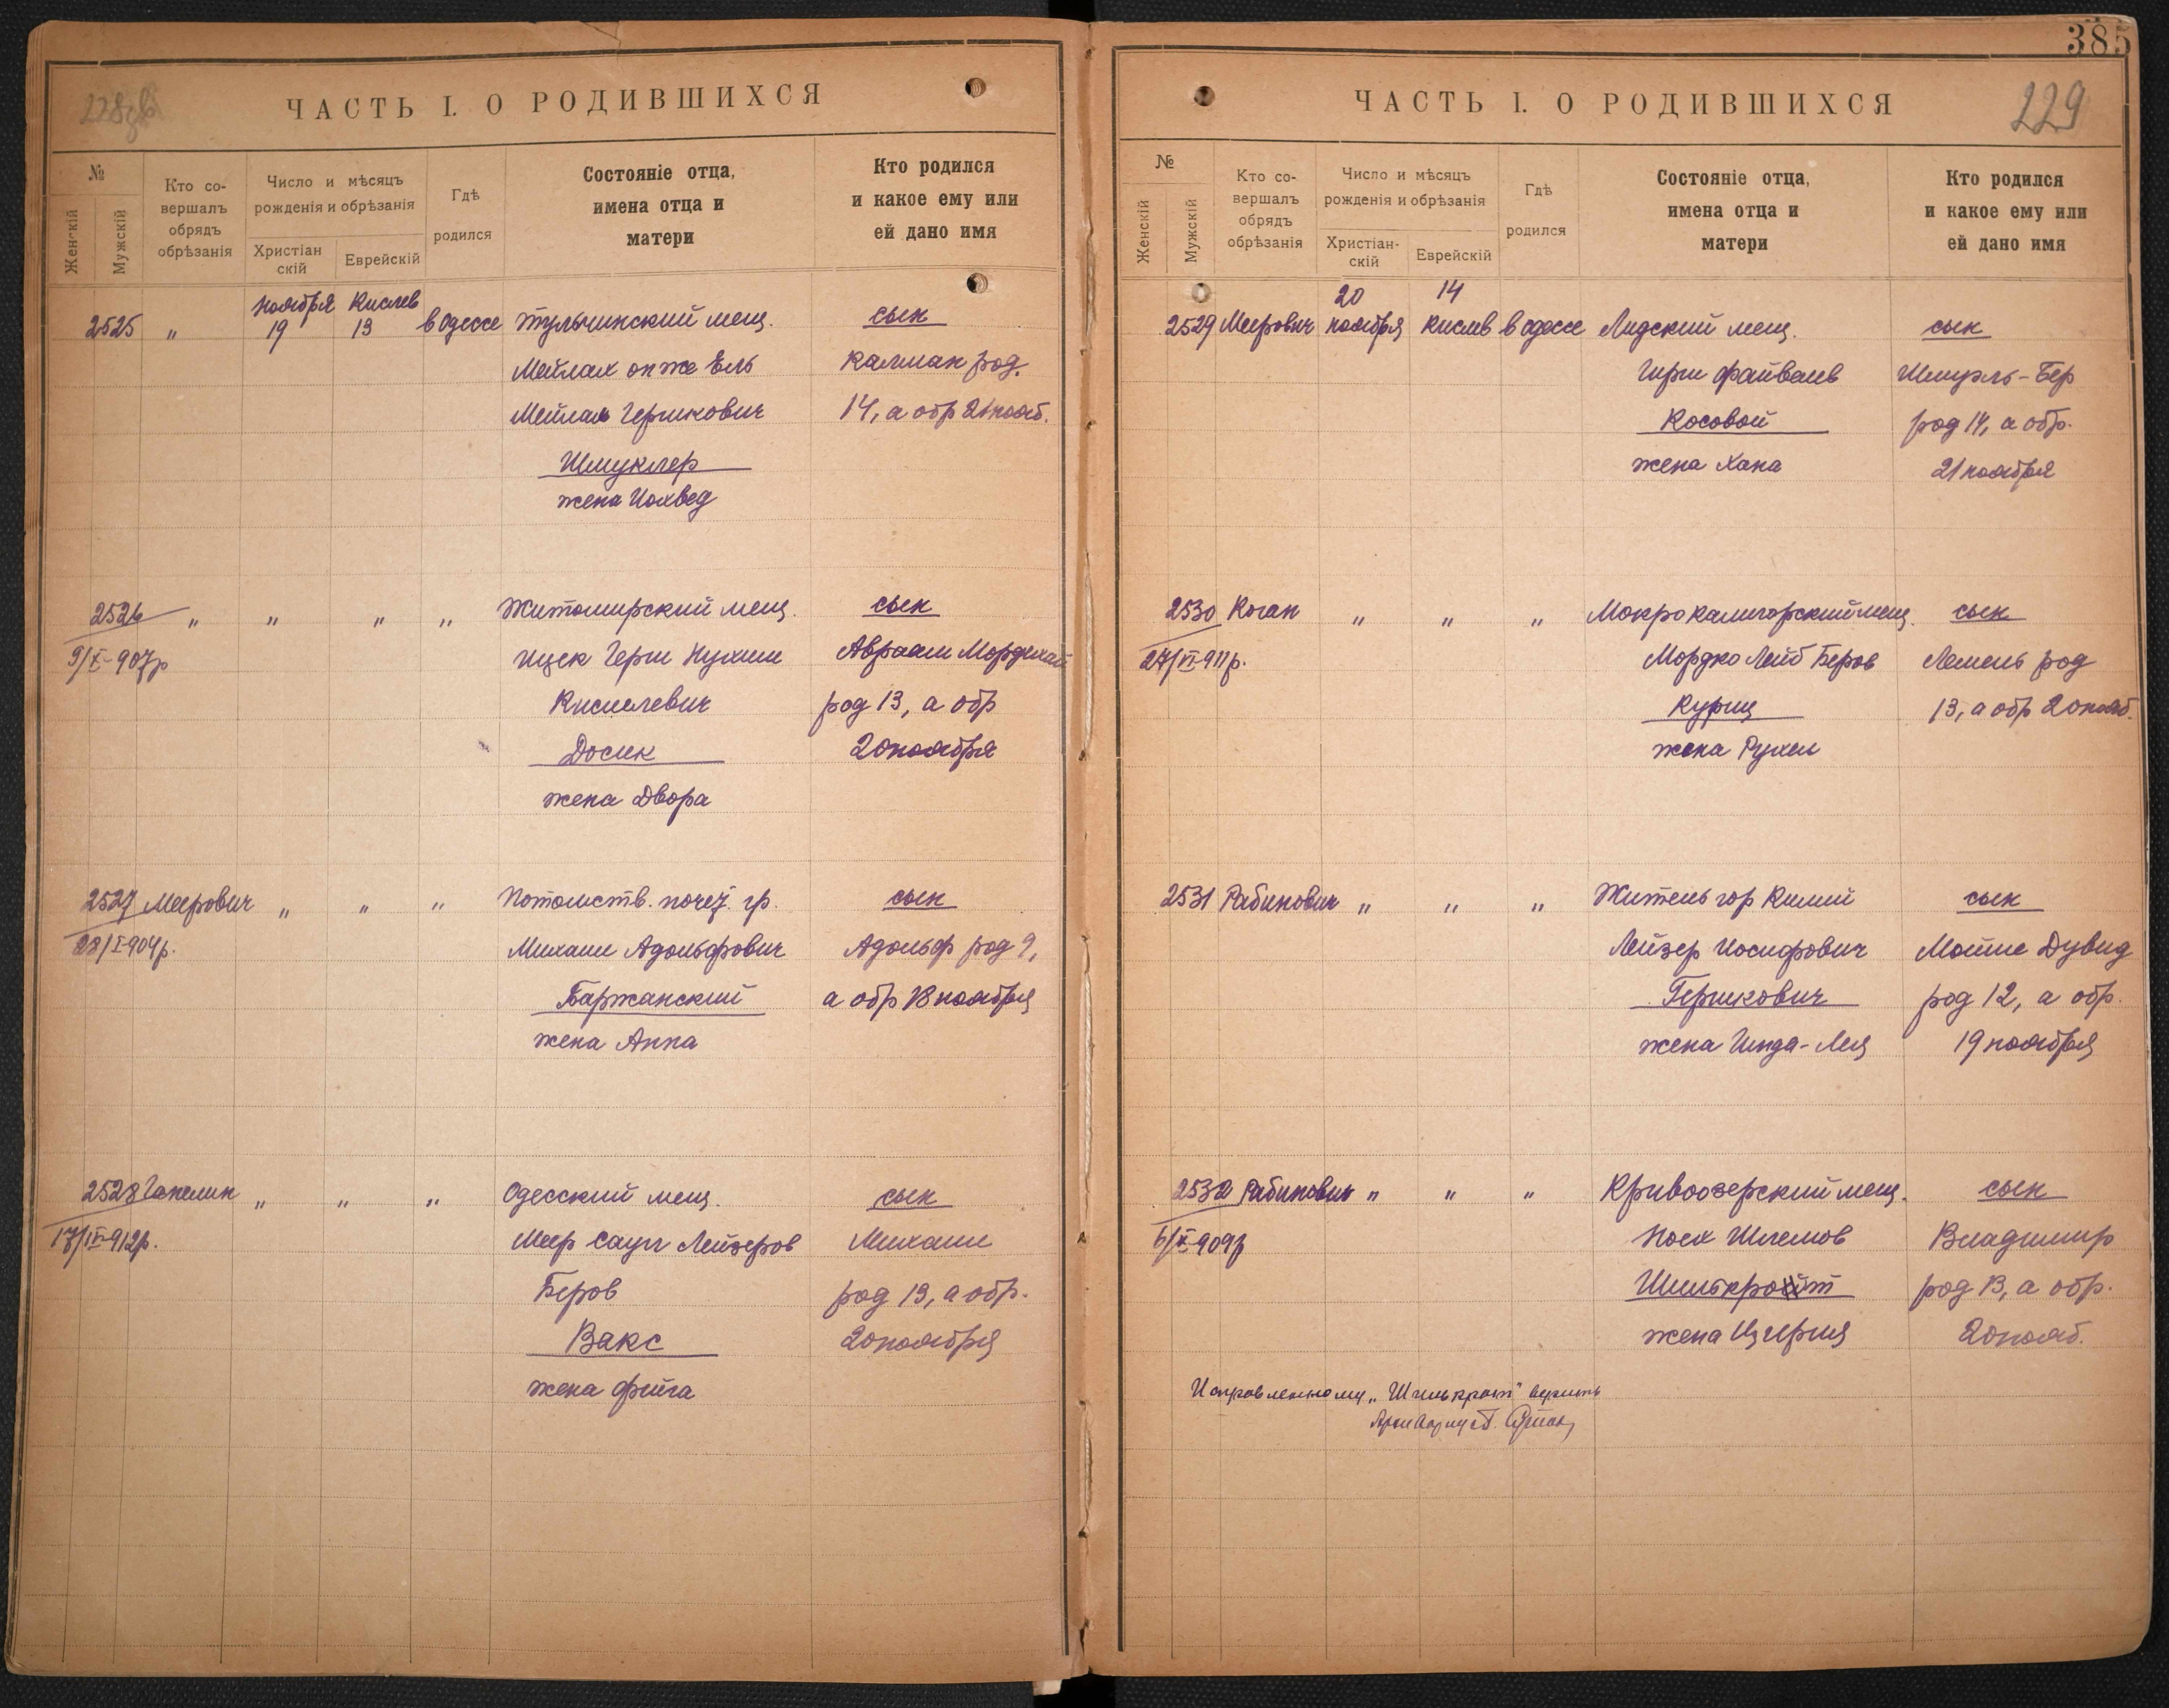 385
228 об
ЧАСТЬ I. О РОДИВШИХСЯ
№
Женскій
Мужскій
Кто со-
вершалъ
обрядъ
обрѣзанія
Число и мѣсяцъ
рожденія и обрѣзанія
Христіан
скій
Еврейскій
Гдѣ
родился
Состояніе отца,
имена отца и
матери
Кто родился
и какое ему или
ей дано имя
2525 " ноября 19 Кислев 13 в Одессе Тульчинский мещ. сын
Мейлах он же Ель Калман род.
Мейлах Гершкович 14, а обр 21 нояб.
Шмуклер
жена Иохвед
2526 " " " " Житомирский мещ. сын
9/X-907 р Ицек Герш Нухим Авраам Мордехай
Киселевич род 13, а обр
Досик 20 ноября
жена Двора
2527 Меерович " " " Потомств. почет. гр. сын
28/I 904 р. Михаил Адольфович Адольф род 9,
Баржанский а обр 18 ноября
жена Анна
2528 Гапелин " " " Одесский мещ. сын
17/IV-912 р. Меер Саул Лейзеров Михаил
Беров род 13, а обр.
Вакс 20 ноября
жена Фейга
229
ЧАСТЬ I. О РОДИВШИХСЯ
№
Женскій
Мужскій
Кто со-
вершалъ
обрядъ
обрѣзанія
Число и мѣсяцъ
рожденія и обрѣзанія
Христіан-
скій
Еврейскій
Гдѣ
родился
Состояніе отца,
имена отца и
матери
Кто родился
и какое ему или
ей дано имя
20 14
2529 Меерович ноября Кислев в Одессе Лидский мещ. сын
Гирш Файвелев Шмуэль-Бер
Косовой род 14, а обр.
жена Хана 21 ноября
2530 Коган " " " Мокрокалигорский мещ. сын
27/VI-911 р. Мордко Лейб Беров Лемель род
Куриц 13, а обр 20 нояб.
жена Рухел
2531 Рабинович " " " Житель гор Килии сын
Лейзер Иосифович Мойше Дувид
Гершкович род 12, а обр.
жена Гинда-Лея 19 ноября
2532 Рабинович " " " Кривоозерский мещ. сын
6/X 909 р Иоех Шлемов Владимир
Шилькройт род 13, а обр.
жена Цирля 20 нояб.
Исправленному „Шилькрот" верить